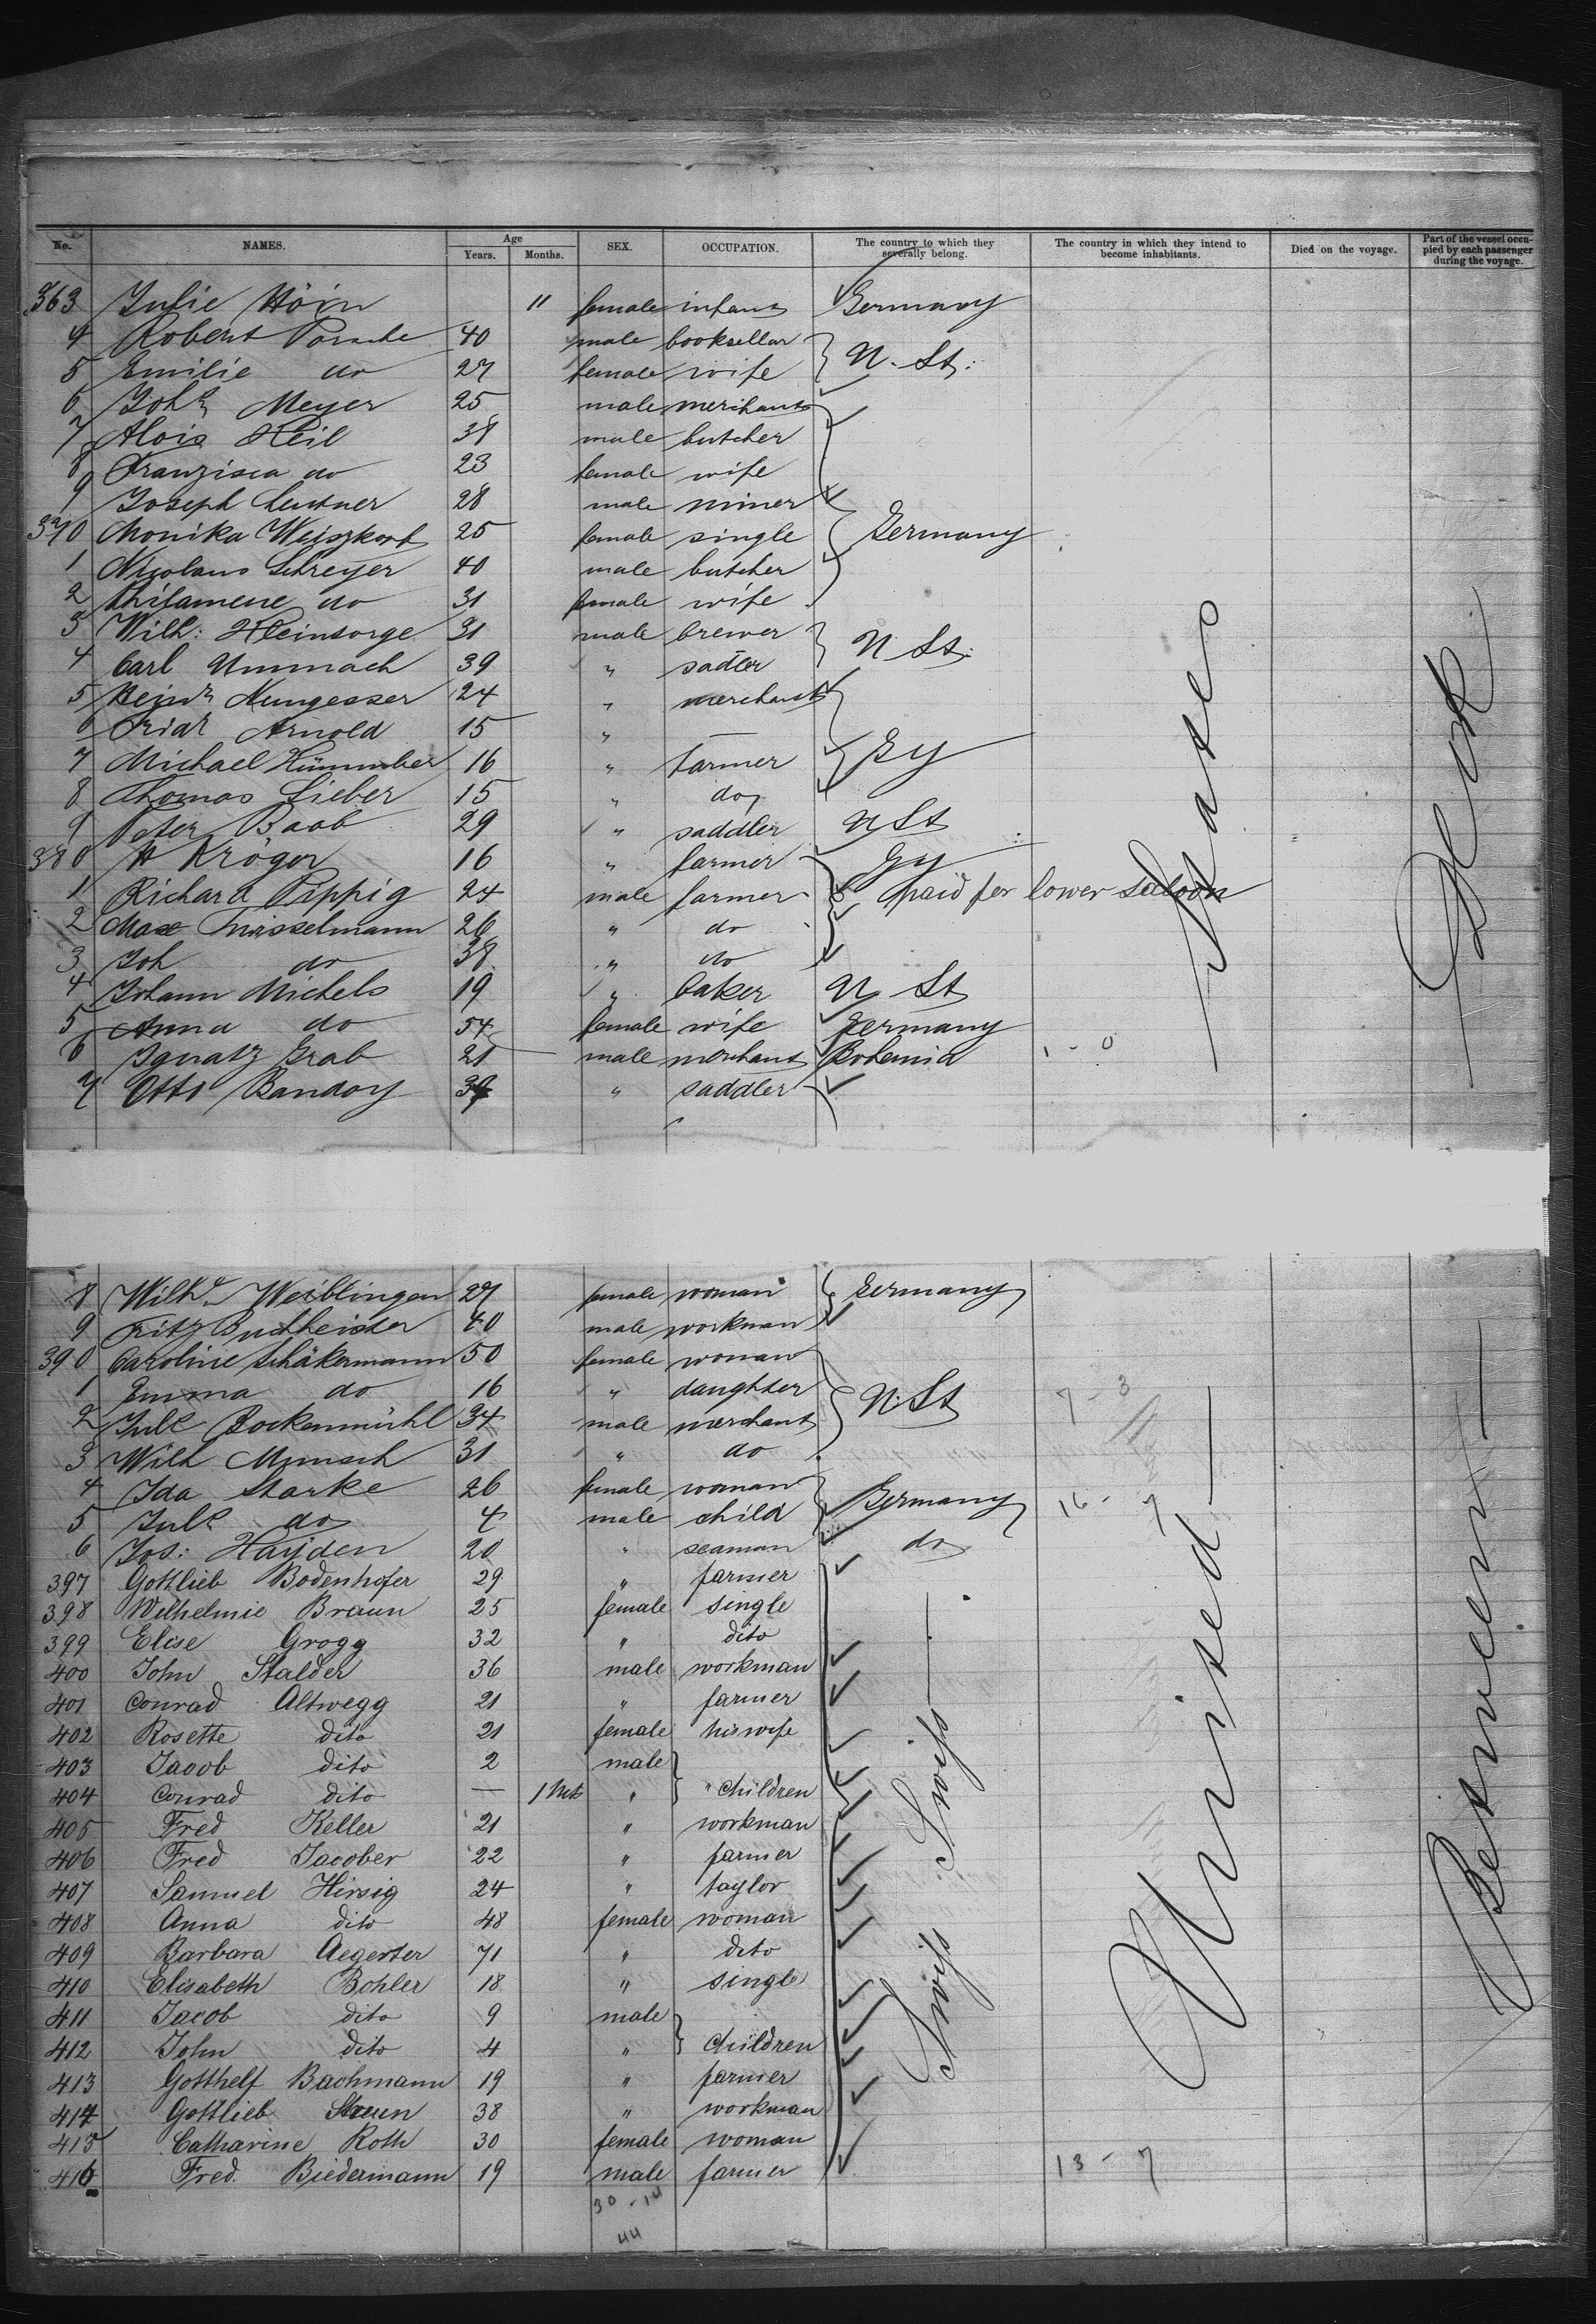 No. NAMES. Age Years. Months. SEX. OCCUPATION. The country to which they severally belong. The country in which they intend to become inhabitants. Died on the voyage. Part of the vessel occupied by each passenger during the voyage.
363 Julie Höin 11 female infant Germany
4 Robert Porsche 40 male booksellar
5 Emilie do 27 female wife N. St:
6 Joh Meyer 25 male merchant
7 Alois Heil 38 male butcher
8 Franzisca do 23 female wife
9 Joseph Leutner 28 male miner
370 Monika Weiszkopf 25 female single Germany
1 Nicolaus Schreyer 40 male butcher
2 Philamene do 31 female wife
3 Wilh: Kleinsorge 31 male brewer
4 Carl Ummach 39 " sadler N St:
5 Heinr Nungesser 24 " merchant
6 Fridr Arnold 15 " —
7 Michael Hümmber 16 " farmer Gy
8 Thomas Lieber 15 " do
9 Peter Baab 29 " saddler N St
380 H Kröger 16 " farmer Gy
1 Richard Pippig 24 male farmer paid for lower saloon
2 Max 26 " do
3 Joh do 38 " do
4 Johann Michels 19 " baker N St
5 Anna do 54 female wife Germany
6 Ignatz Grab 21 male merchant Bohemia 1 - 0
7 Otto Bandoy " saddler
8 Wilh Weiblingen 27 female woman Germany
9 Fritz Buchheister 40 male workman
390 Caroline Schäkermann 50 female woman
1 Emma do 16 " daughter N. St 7 - 3
2 Jul Bockenmühl 34 male merchant
3 Wilh Munsch 31 " do
4 Ida Starke 26 female woman Germany 16 - 7
5 Jul do 4 male child
6 Jos: Hayden 20 " seaman do
397 Gottlieb Bodenhofer 29 " farmer
398 Wilhelmie Braun 25 female single
399 Elise Grogg 32 " dito
400 John Stalder 36 male workman
401 Conrad Altwegg 21 " farmer
402 Rosette dito 21 female his wife
403 Jacob dito 2 male
404 Conrad dito — 1 Mt " " Children
405 Fred Keller 21 " workman
406 Fred Jacober 22 " farmer
407 Samuel Hirsig 24 " taylor
408 Anna dito 48 female woman
409 Barbara Aegerter 71 " dito
410 Elisabeth Bohler 18 " single
411 Jacob dito 9 male
412 John dito 4 " Children
413 Gotthelf Bachmann 19 " farmer
414 Gottlieb 38 " workman
415 Catharine Roth 30 female woman
416 Fred. Biedermann 19 male farmer 13 - 7
30 - 14
44
Swiss
Swiss
United
States
Between
Deck